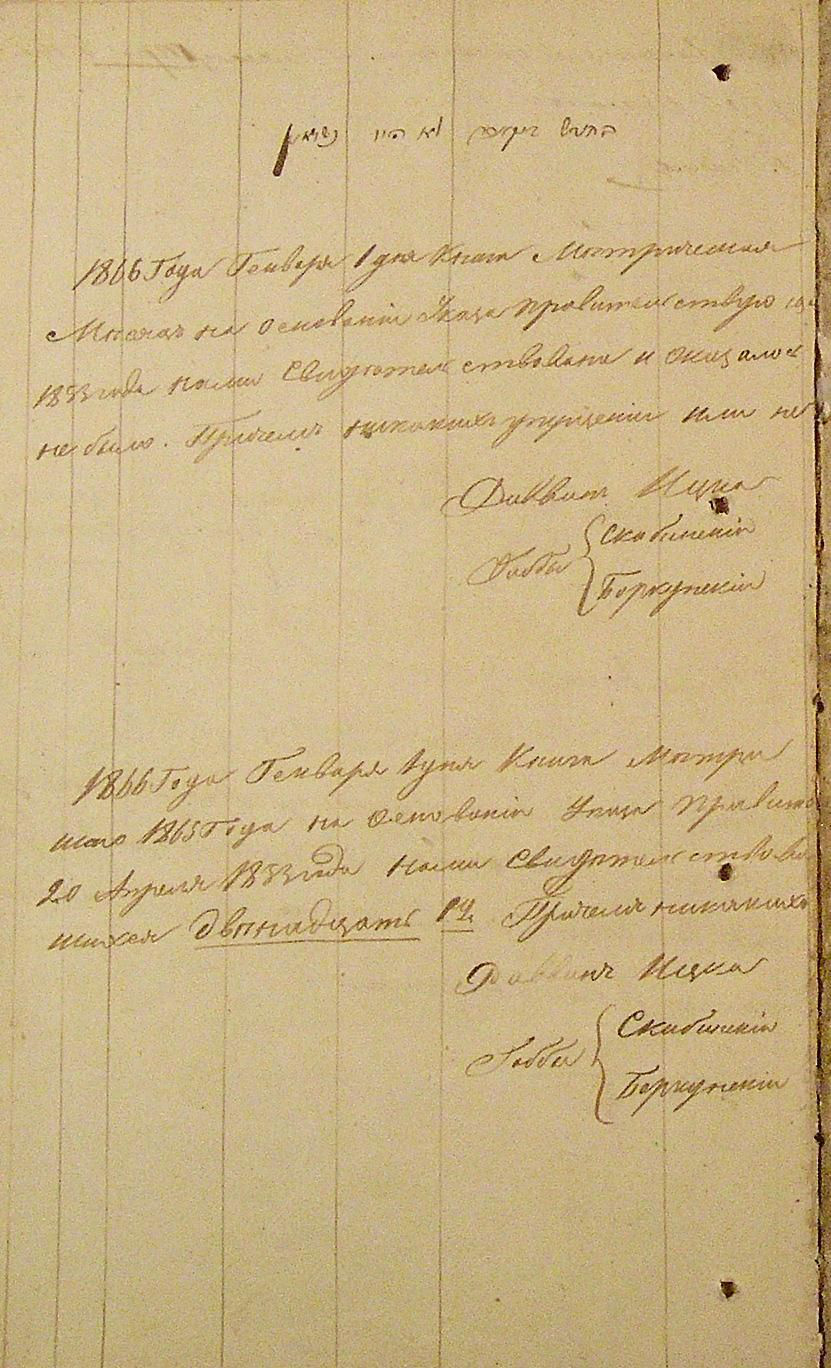 לא היו נשואין
1866 Года Генваря 1 дня Книга Метрическая
на основаніи Указа Правительствую
1853 года нами Свидѣтельствована и оказалось
не было. Причемъ никакихъ упущеніи или не
Раввинъ Ицка
Габбы { Скабинскіи
Боркунскіи
1866 Года Генваря 1 дня Книга Метри
1865 Года на основаніи Указа Правите
20 Апреля 1853 года нами Свидѣтельствова
шихся двѣнадцать 12. Причемъ никакихъ
Раввинъ Ицка
Габбы { Скабинскіи
Боркунскіи